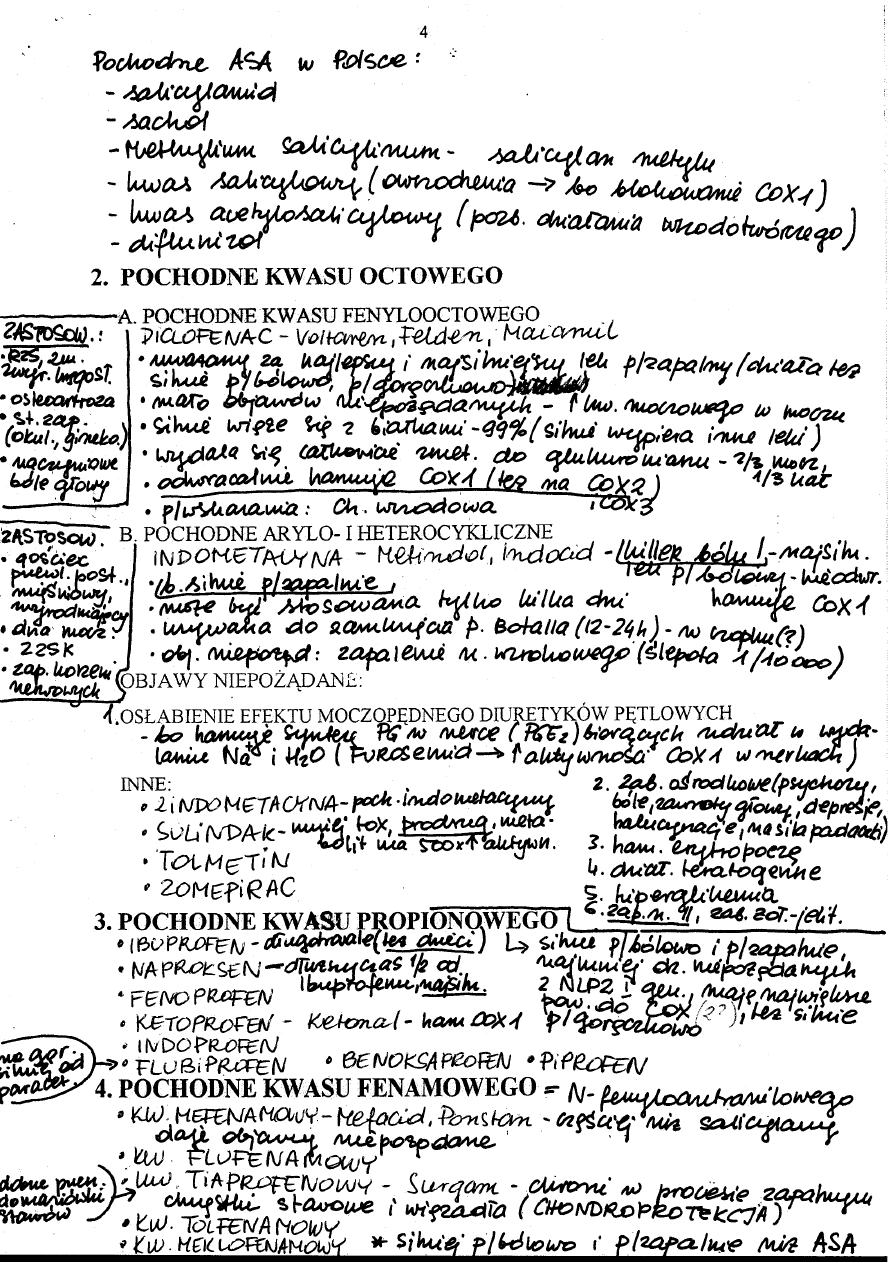 4
Pochodne ASA w Polsce:
- salicylamid
- sachol
- Methylium salicylinum - salicylan metylu
- kwas salicylowy (owrzodzenia → bo blokowanie COX1)
- kwas acetylosalicylowy (pozb. działania wrzodotwórczego)
- diflunizol
2. POCHODNE KWASU OCTOWEGO
A. POCHODNE KWASU FENYLOOCTOWEGO
DICLOFENAC - Voltaren, Felden, Majamil
• uważany za najlepszy i najsilniejszy lek p/zapalny (działa też
silnie p/bólowo, p/gorączkowo)
• mało objawów niepożądanych - ↑ kw. moczowego w moczu
• silnie wiąże się z białkami - 99% (silnie wypiera inne leki)
• wydala się całkowicie zmet. do glukuronianu - 2/3 mocz,
1/3 kał
• odwracalnie hamuje COX1 (też na COX2)
i COX3
• p/wskazania: Ch. wrzodowa
ZASTOSOW.:
• RZS, zm.
zwyr. kręgosł.
• osteoartroza
• st. zap.
(okul., gineko.)
• naczyniowe
bóle głowy
B. POCHODNE ARYLO- I HETEROCYKLICZNE
INDOMETACYNA - Metindol, Indocid - (killer bólu) - najsiln.
lek p/bólowy - nieodwr.
hamuje COX1
• b. silnie p/zapalnie
• może być stosowana tylko kilka dni
• używana do zamknięcia p. Botalla (12-24h) - w czopku(?)
• obj. nieporząd: zapalenie n. wzrokowego (ślepota 1/10000)
ZASTOSOW.
• gościec
przewl. post.,
mięśniowy,
zwyrodniający
• dna mocz.
• ZZSK
• zap. korzeni
nerwowych
OBJAWY NIEPOŻĄDANE:
1. OSŁABIENIE EFEKTU MOCZOPĘDNEGO DIURETYKÓW PĘTLOWYCH
- bo hamuje syntezę PG w nerce (PGE2) biorących udział w wyda-
laniu Na+ i H2O (Furosemid → ↑ aktywności COX1 w nerkach)
INNE:
• ZINDOMETACYNA - poch. indometacyny
• SULINDAK - mniej tox, prodrug, meta-
bolit ma 500x ↑ aktywn.
• TOLMETIN
• ZOMEPIRAC
2. Zab. ośrodkowe (psychozy,
bóle, zawroty głowy, depresje,
halucynacje, nasila padaczki)
3. ham. erytropoezę
4. dział. teratogenne
5. hiperglikemia
6. zap. n. II, zab. żoł.-jelit.
3. POCHODNE KWASU PROPIONOWEGO
• IBUPROFEN - długotrwale (też dzieci)
• NAPROKSEN - dłuższy czas 1/2 od
Ibuprofenu, najsiln.
• FENOPROFEN
• KETOPROFEN - Ketonal - ham COX1
• INDOPROFEN
• FLUBIPROFEN • BENOKSAPROFEN • PIPROFEN
↳ silnie p/bólowo i p/zapalnie,
najmniej dz. niepożądanych
z NLPZ i gen., mają największe
pow. do COX (2?), też silnie
p/gorączkowo
na gor.
silniej od
paracet.
4. POCHODNE KWASU FENAMOWEGO = N-fenyloantranilowego
• KW. MEFENAMOWY - Mefacid, Ponstan - częściej niż salicylany
daje objawy niepożądane
• KW. FLUFENAMOWY
• kw. TIAPROFENOWY - Surgam - chroni w procesie zapalnym
chrząstki stawowe i więzadła (CHONDROPROTEKCJA)
• KW. TOLFENAMOWY
• KW. MEKLOFENAMOWY * silniej p/bólowo i p/zapalnie niż ASA
stawów